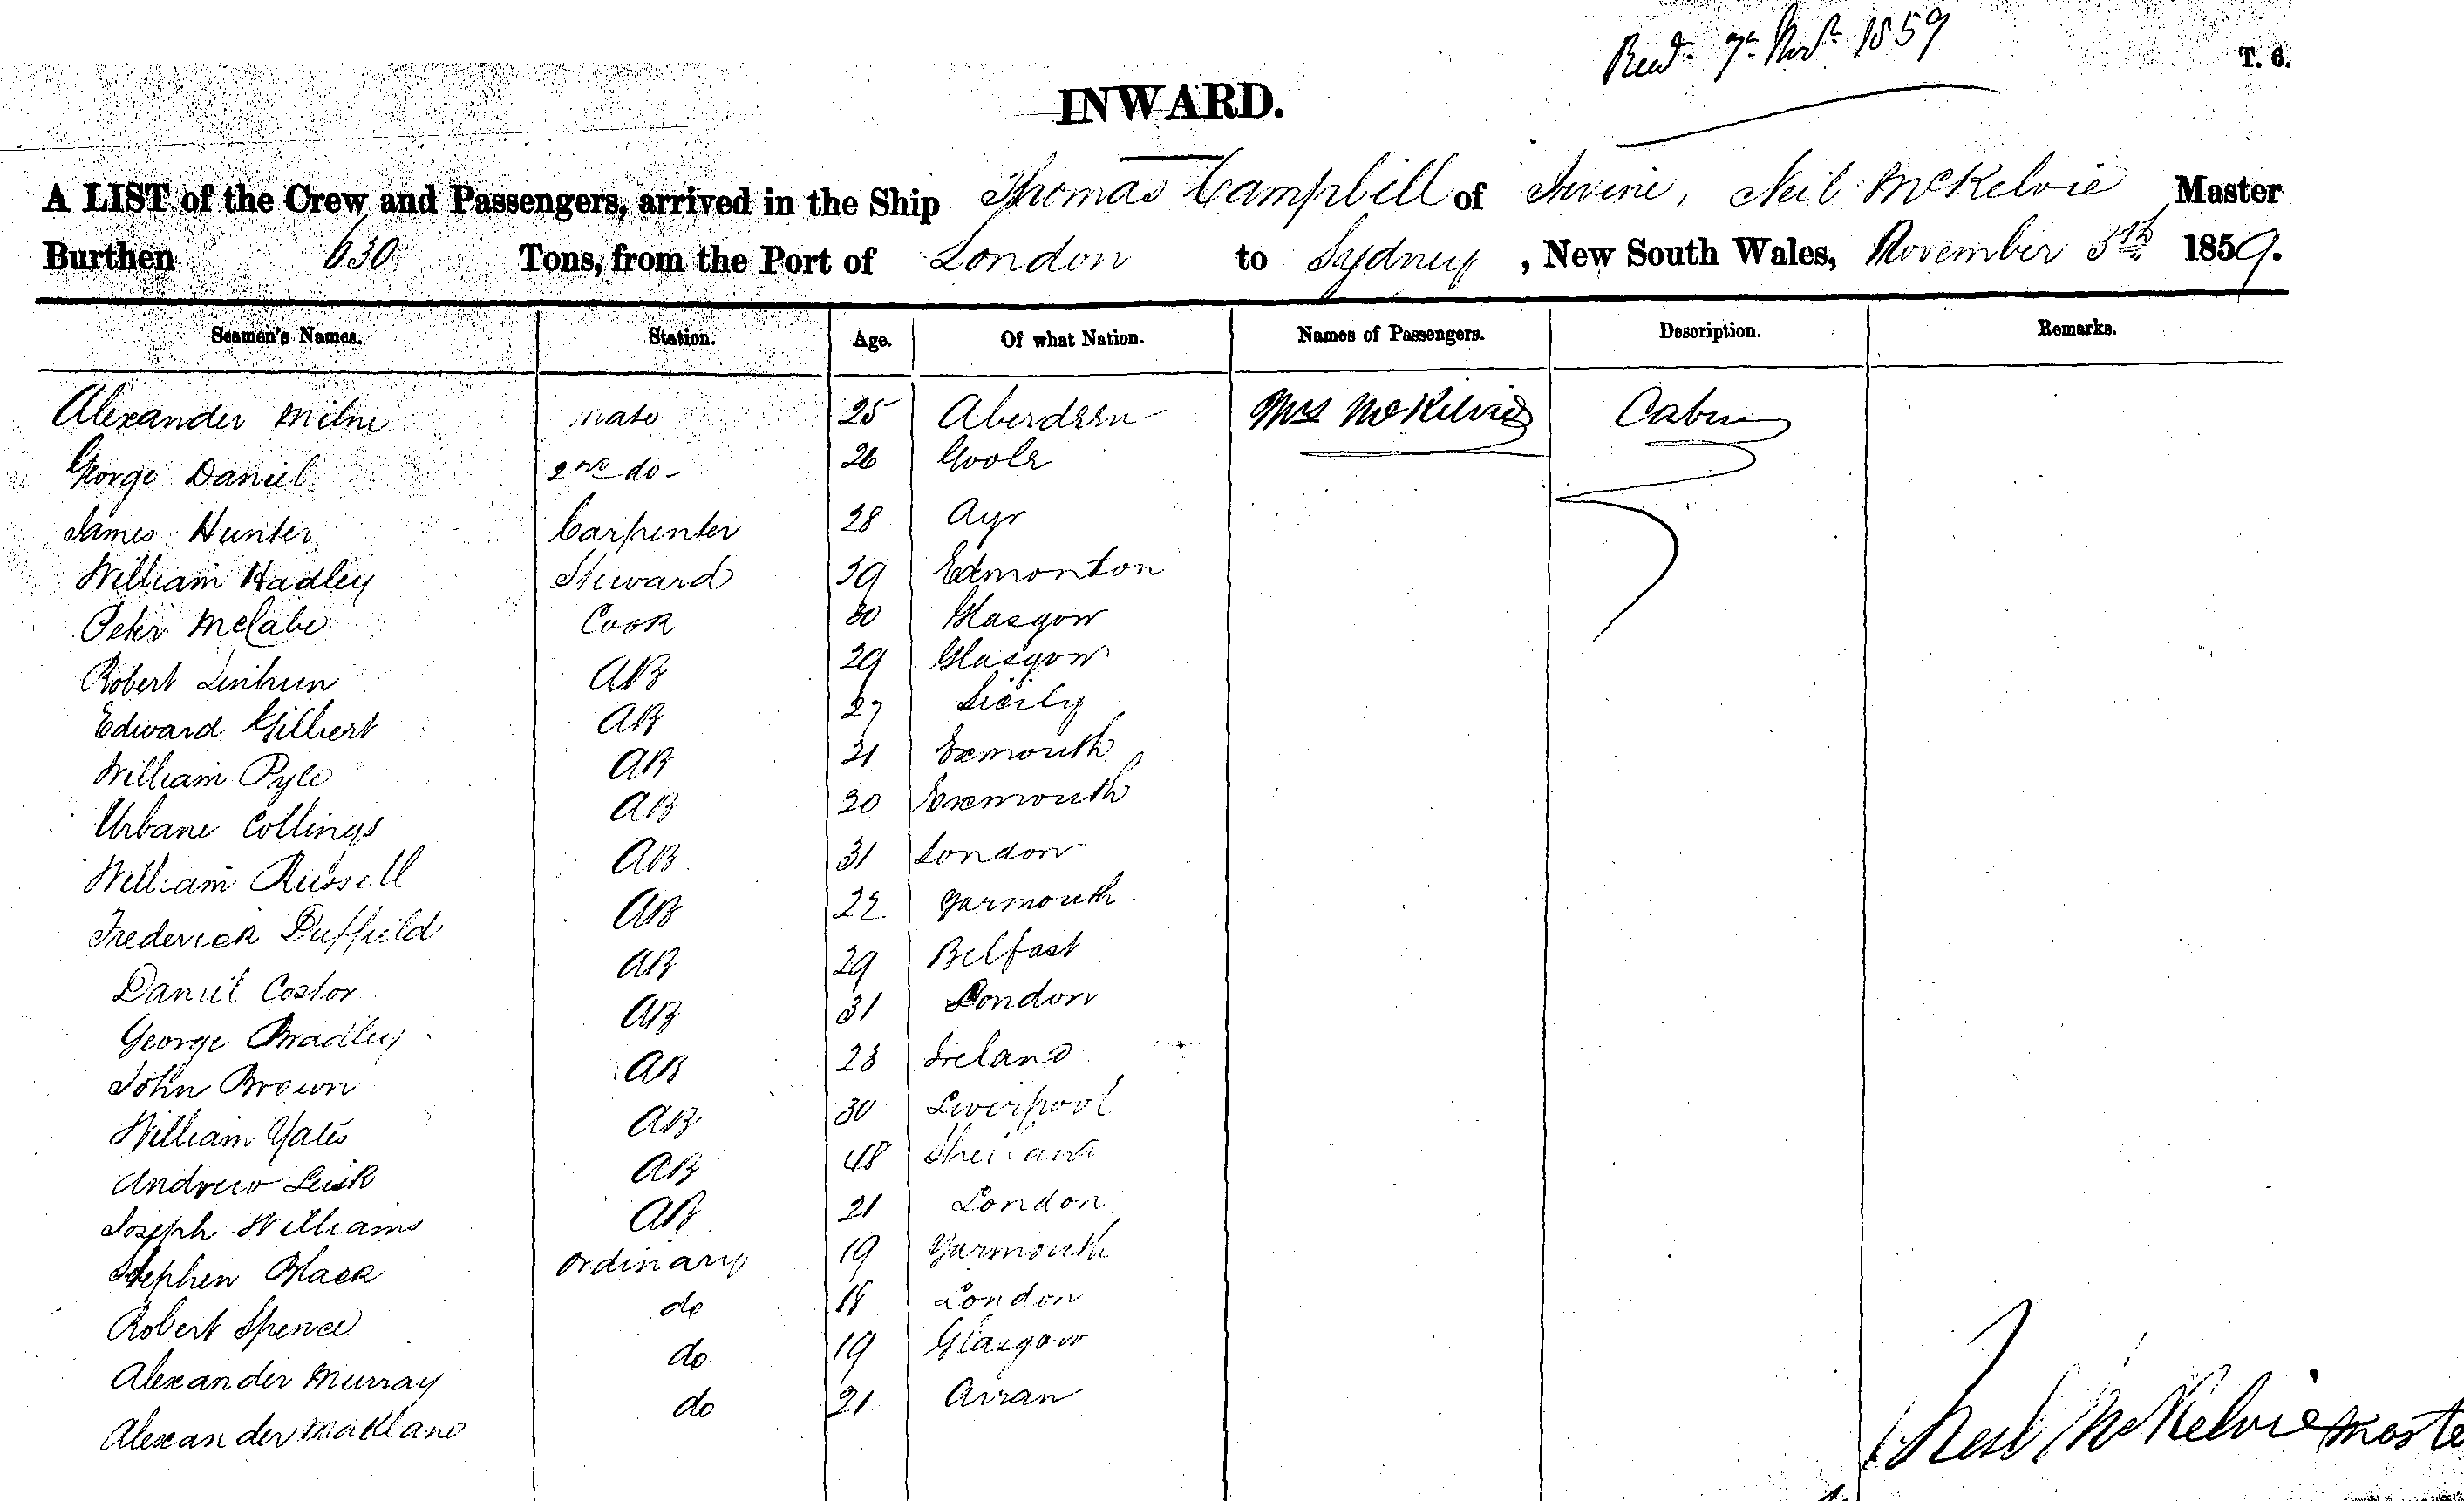 Recd. 7th Novr. 1859
T. 6.
INWARD.
A LIST of the Crew and Passengers, arrived in the Ship Thomas Campbell of Irvine, Neil McKelvie Master
Burthen 630 Tons, from the Port of London to Sydney, New South Wales, November 5th 1859.
Seamen's Names. Station. Age. Of what Nation. Names of Passengers. Description. Remarks.
Alexander Milne mate 25 Aberdeen Mrs McKelvie Cabin
George Daniel 2nd do 26 Goole
James Hunter Carpenter 28 Ayr
William Hadley Steward 39 Edmonton
Peter McCabe Cook 30 Glasgow
Robert AB 29 Glasgow
Edward Gilbert AB 27 Sicily
William Pyle AB 21 Exmouth
Urbane Collings AB 20 Exmouth
William Russell AB 31 London
Frederick Duffield AB 22 Yarmouth
Daniel Costor AB 29 Belfast
George Bradley AB 31 London
John Brown AB 23 Ireland
William Yates AB 30 Liverpool
Andrew Leisk AB 48
Joseph Williams AB 21 London
Stephen Black Ordinary 19 Yarmouth
Robert Spence do 18 London
Alexander Murray do 19 Glasgow
Alexander do 21 Arran
Neil McKelvie